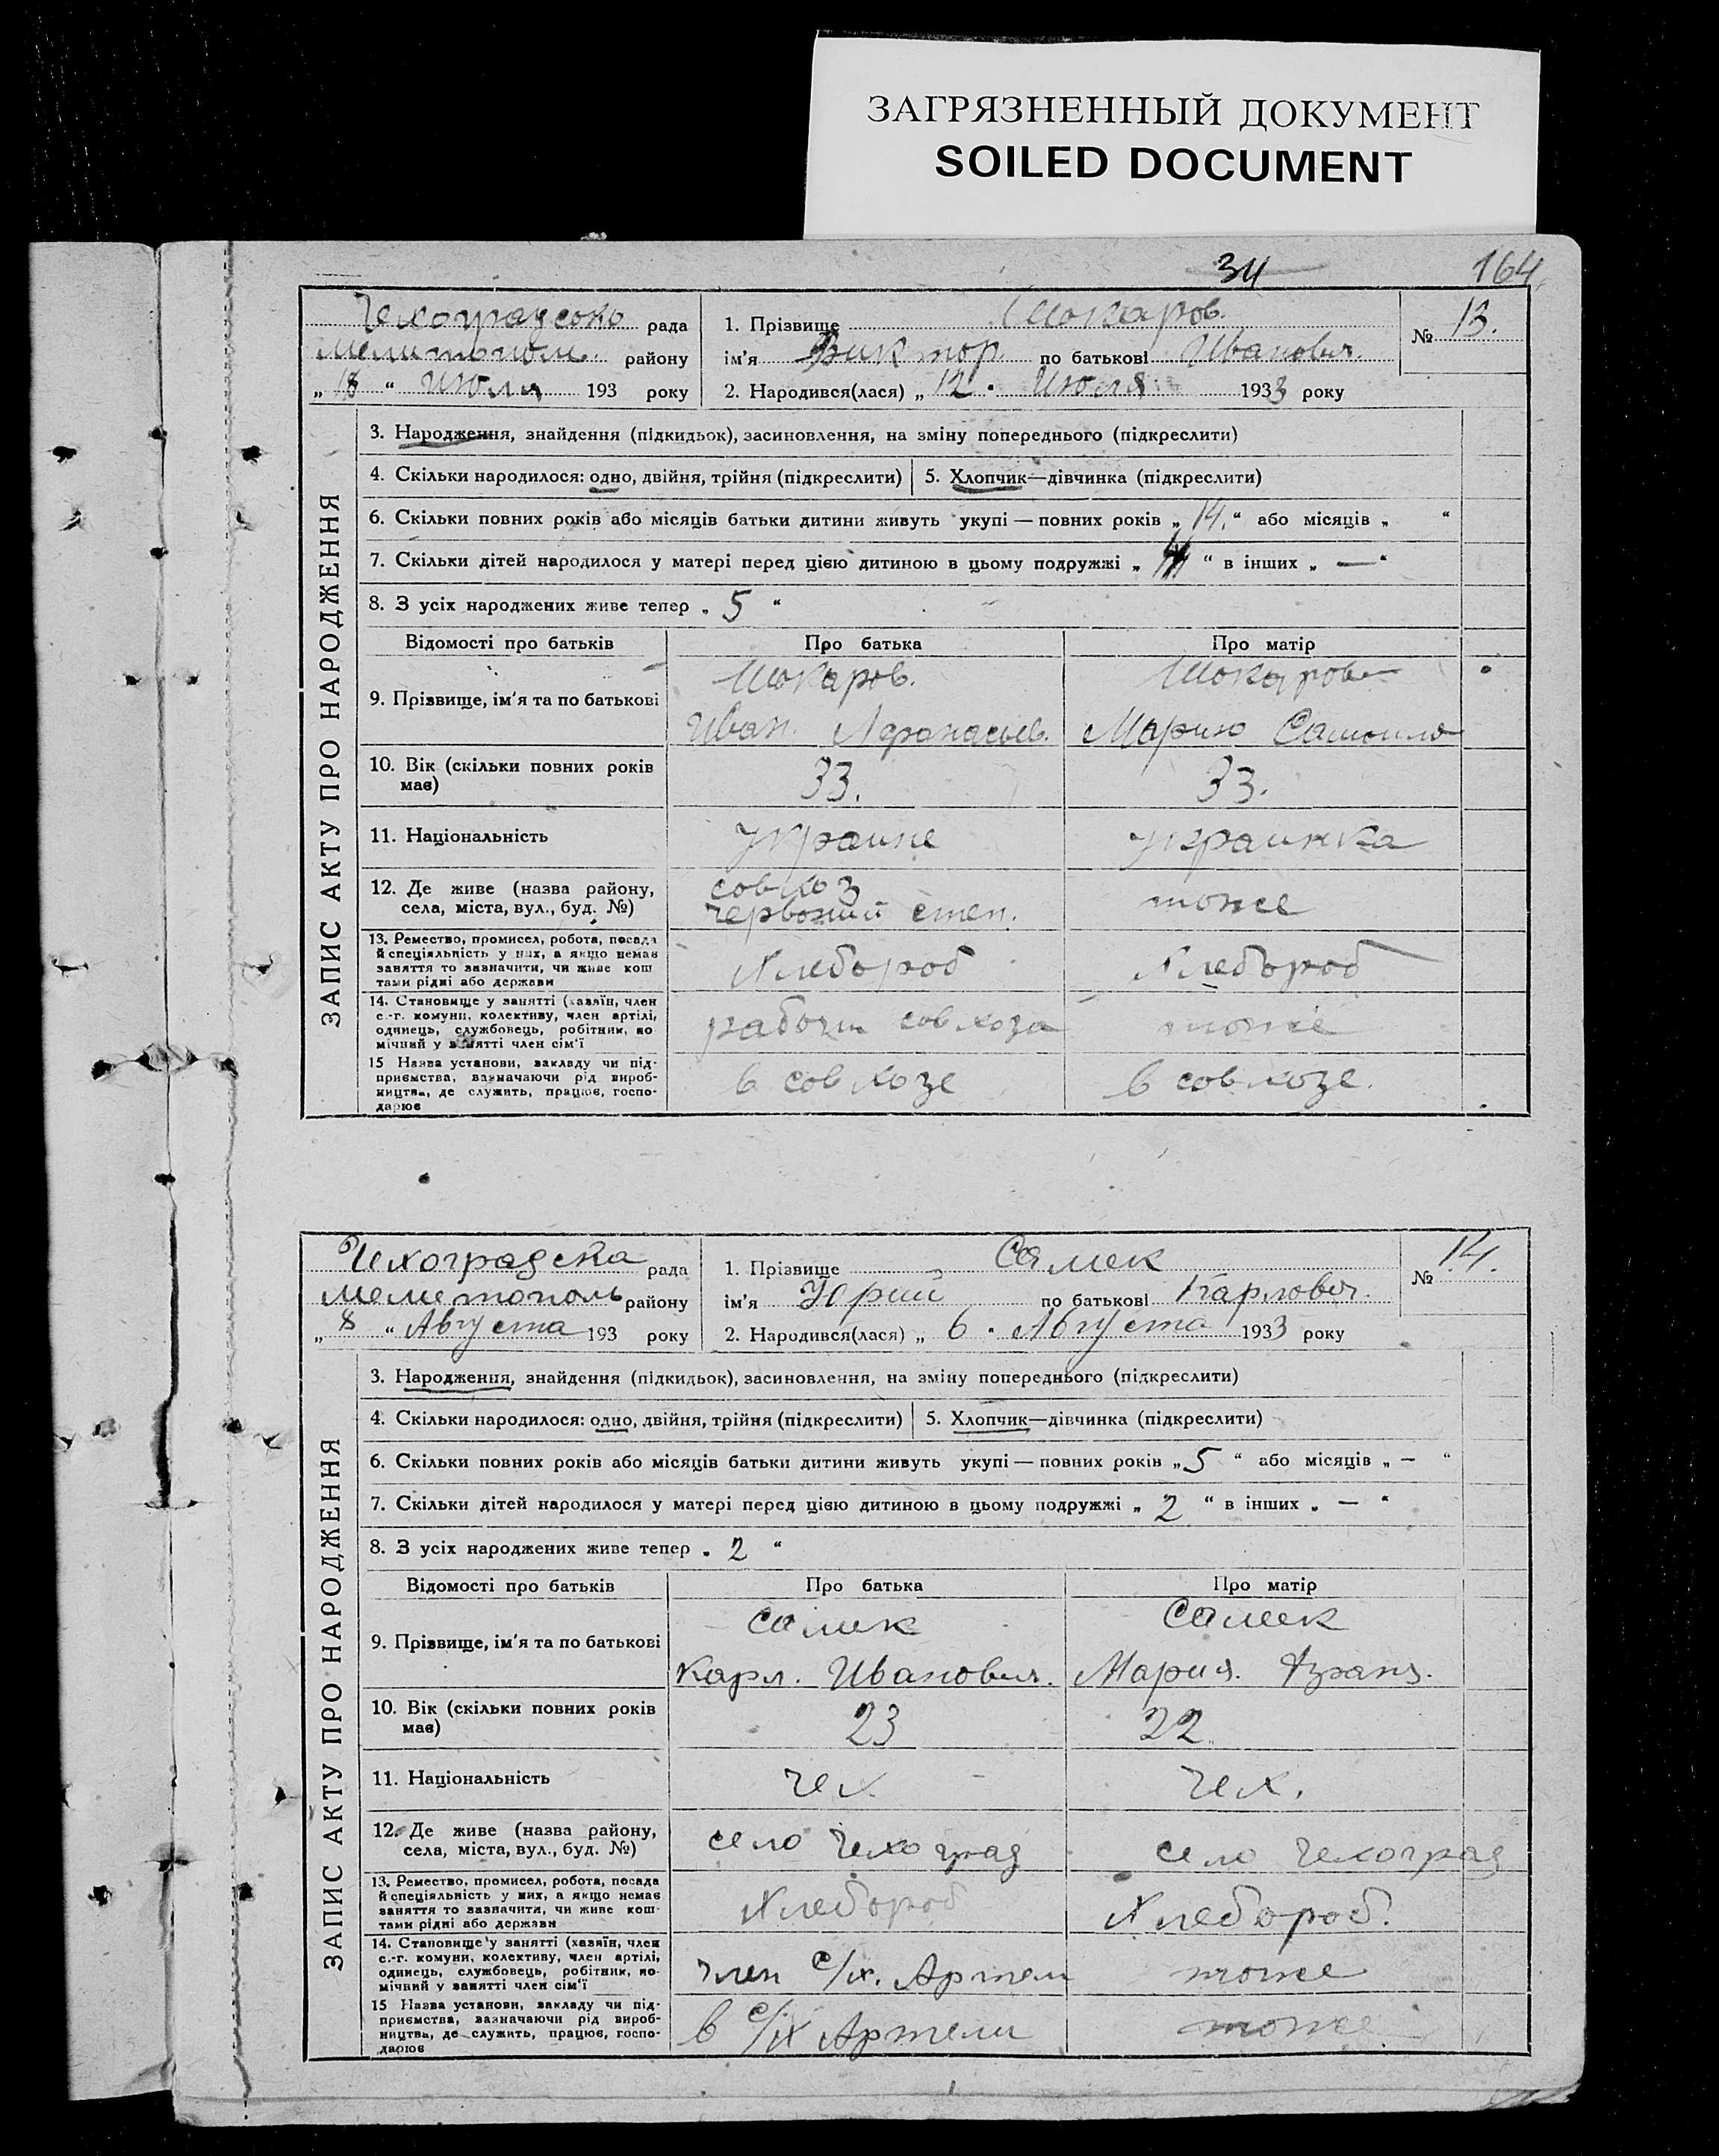 ЗАГРЯЗНЕННЫЙ ДОКУМЕНТ
SOILED DOCUMENT
34 164
рада 1. Прізвище № 13.
району ім'я Виктор по батькові Иванович.
„ 18 “ Июля 193 року 2. Народився(лася) „ 12 “ Июля 1933 року
ЗАПИС АКТУ ПРО НАРОДЖЕННЯ
3. Народження, знайдення (підкидьок), засиновлення, на зміну попереднього (підкреслити)
4. Скільки народилося: одно, двійня, трійня (підкреслити) 5. Хлопчик—дівчинка (підкреслити)
6. Скільки повних років або місяців батьки дитини живуть укупі — повних років „ 14. “ або місяців „ “
7. Скільки дітей народилося у матері перед цією дитиною в цьому подружжі „ “ в інших „ — “
8. З усіх народжених живе тепер „ 5 “
Відомості про батьків Про батька Про матір
9. Прізвище, ім'я та по батькові
Шокаров.
Иван. Афанасьев.
10. Вік (скільки повних років має) 33. 33.
11. Національність украине украинка
12. Де живе (назва району, села, міста, вул., буд. №)
совхоз
червоний степ. тоже
13. Ремество, промисел, робота, посада
й спеціяльність у них, а якщо немає
заняття то зазначити, чи живе кош
тами рідні або держави
Хлебороб Хлебороб
14. Становище у занятті (хазяїн, член
с.-г. комуни, колективу, член артілі,
одинець, службовець, робітник, по
мічний у занятті член сім'ї
рабочи совхоза тоже
15 Назва установи, закладу чи під-
приємства, зазначаючи рід вироб-
ництва, де служить, працює, госпо-
дарює
в совхозе в совхозе.
Чехоградска рада 1. Прізвище Самек № 14.
Мелитополь району ім'я Юрий по батькові Карлович.
„ 8 “ Августа 193 року 2. Народився(лася) „ 6 “ Августа 1933 року
ЗАПИС АКТУ ПРО НАРОДЖЕННЯ
3. Народження, знайдення (підкидьок), засиновлення, на зміну попереднього (підкреслити)
4. Скільки народилося: одно, двійня, трійня (підкреслити) 5. Хлопчик—дівчинка (підкреслити)
6. Скільки повних років або місяців батьки дитини живуть укупі — повних років „ 5 “ або місяців „ — “
7. Скільки дітей народилося у матері перед цією дитиною в цьому подружжі „ 2 “ в інших „ — “
8. З усіх народжених живе тепер „ 2 “
Відомості про батьків Про батька Про матір
9. Прізвище, ім'я та по батькові
Самек Самек
Карл. Иванович. Мария. Франц.
10. Вік (скільки повних років має) 23 22
11. Національність чех чех.
12. Де живе (назва району, села, міста, вул., буд. №)
село Чехоград село Чехоград
13. Ремество, промисел, робота, посада
й спеціяльність у них, а якщо немає
заняття то зазначити, чи живе кош-
тами рідні або держави
Хлебороб Хлебороб.
14. Становище у занятті (хазяїн, член
с.-г. комуни, колективу, член артілі,
одинець, службовець, робітник, по-
мічний у занятті член сім'ї
член с/х. Артели тоже
15 Назва установи, закладу чи під-
приємства, зазначаючи рід вироб-
ництва, де служить, працює, госпо-
дарює
в с/х Артели тоже